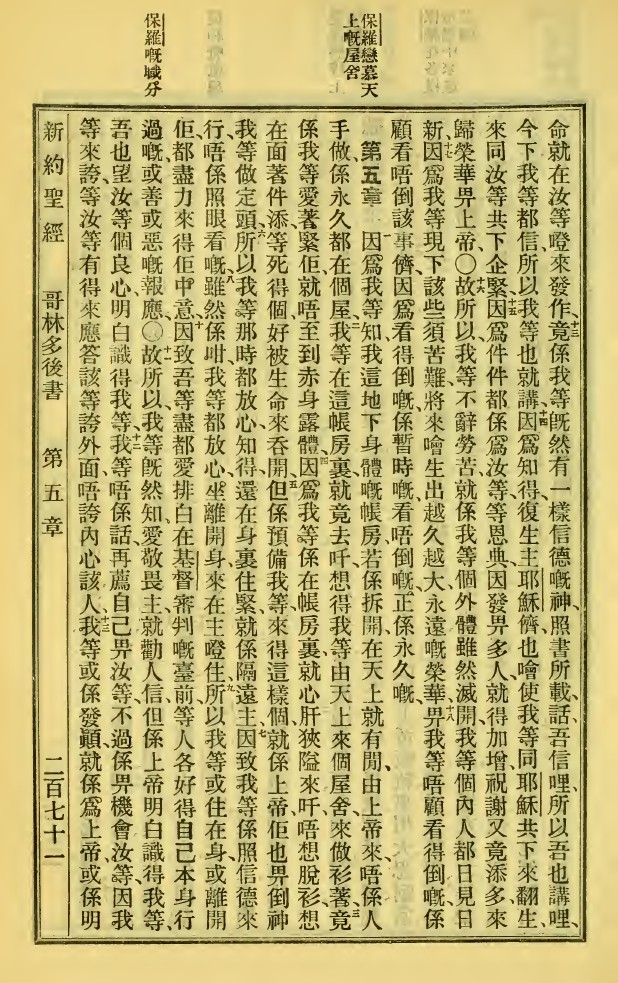 保羅戀慕天
上嘅屋舍
保羅嘅職分
命就在汝等噔來發作、十三竟係我等既然有一樣信德嘅神、照書所載、話吾信哩、所以吾也講哩、
今下我等都信、所以我等也就講、十四因爲知得、復生主耶穌儕、也噲使我等同耶穌共下來翻生、
來同汝等共下企緊、十五因爲件件都係爲汝等、等恩典因發畀多人、就得加增祝謝、又竟添多來
歸榮華畀上帝、〇十六故所以我等不辭勞苦、就係我等個外體雖然滅開、我等個內人都日見日
新、十七因爲我等現下該些須苦難、將來噲生出越久越大永遠嘅榮華畀我等、十八唔顧看得倒嘅、係
顧看唔倒該事儕、因爲看得倒嘅、係暫時嘅、看唔倒嘅、正係永久嘅、
第五章 一因爲我等知、我這地下身體嘅帳房、若係拆開、在天上就有間、由上帝來、唔係人
手做、係永久都在個屋、二我等在這帳房裏、就竟去吁、想得我等由天上來個屋舍來做衫著、三竟
係我等愛著緊佢、就唔至到赤身露體、四因爲我等係在帳房裏、就心肝狹隘來吁、唔想脫衫、想
在面著件添、等死得個、好被生命來吞開、五但係預備我等來得這樣個、就係上帝、佢也畀倒神
我等做定頭、六所以我等那時都放心、知得還在身裏住緊、就係隔遠主、七因致我等係照信德來
行、唔係照眼看嘅、八雖然係咁、我等都放心、𡘙離開身、來在主噔住、九所以我等或住在身、或離開
佢、都盡力來得佢中意、十因致吾等盡都愛排白在基督審判嘅臺前、等人各好得自己本身行
過嘅、或善或惡嘅報應、〇十一故所以我等既然知愛敬畏主、就勸人信、但係上帝明白識得我等、
吾也望汝等個良心、明白識得我等、十二我等唔係話再薦自己畀汝等、不過係畀機會汝等、因我
等來誇、等汝等有得來應答該等誇外面、唔誇內心該人、十三我等或係發顚、就係爲上帝、或係明
新約聖經 哥林多後書 第五章 二百七十一